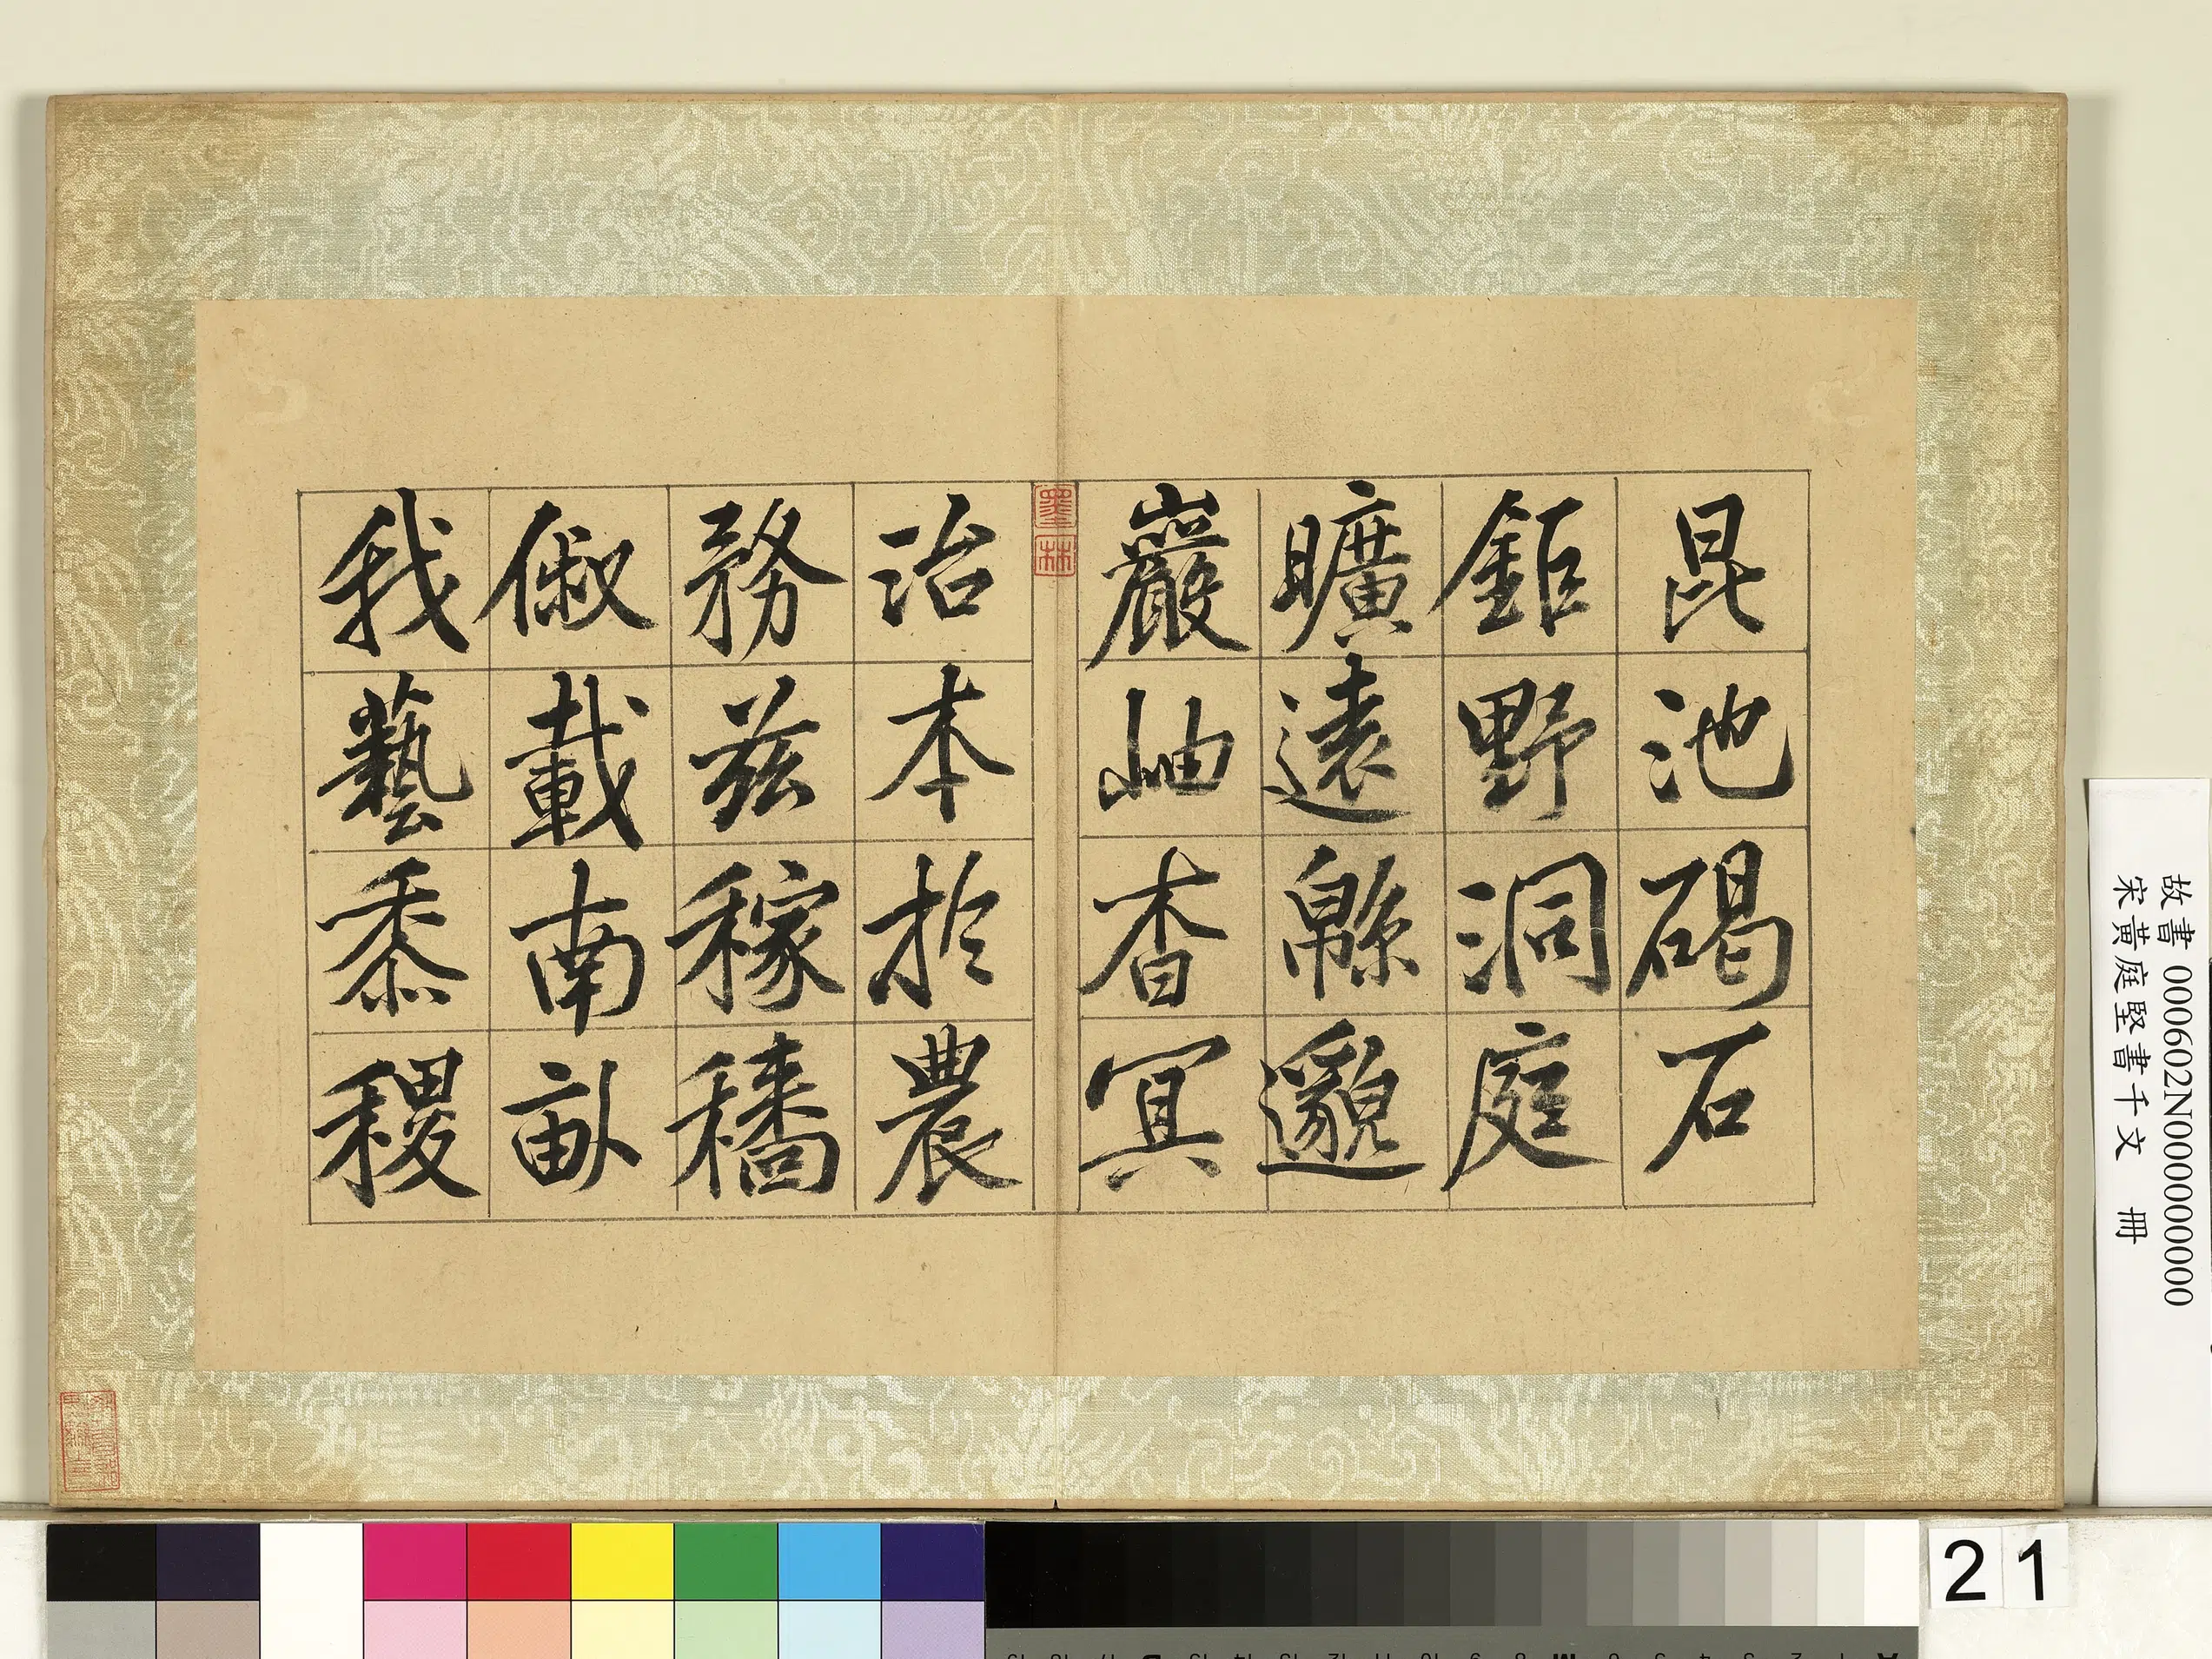 昆池碣石
鉅野洞庭
曠遠緜邈
巖岫杳冥
治本於農
務茲稼穡
俶載南畝
我藝黍稷
墨林
故書 000602N000000000
宋黃庭堅書千文 冊
21